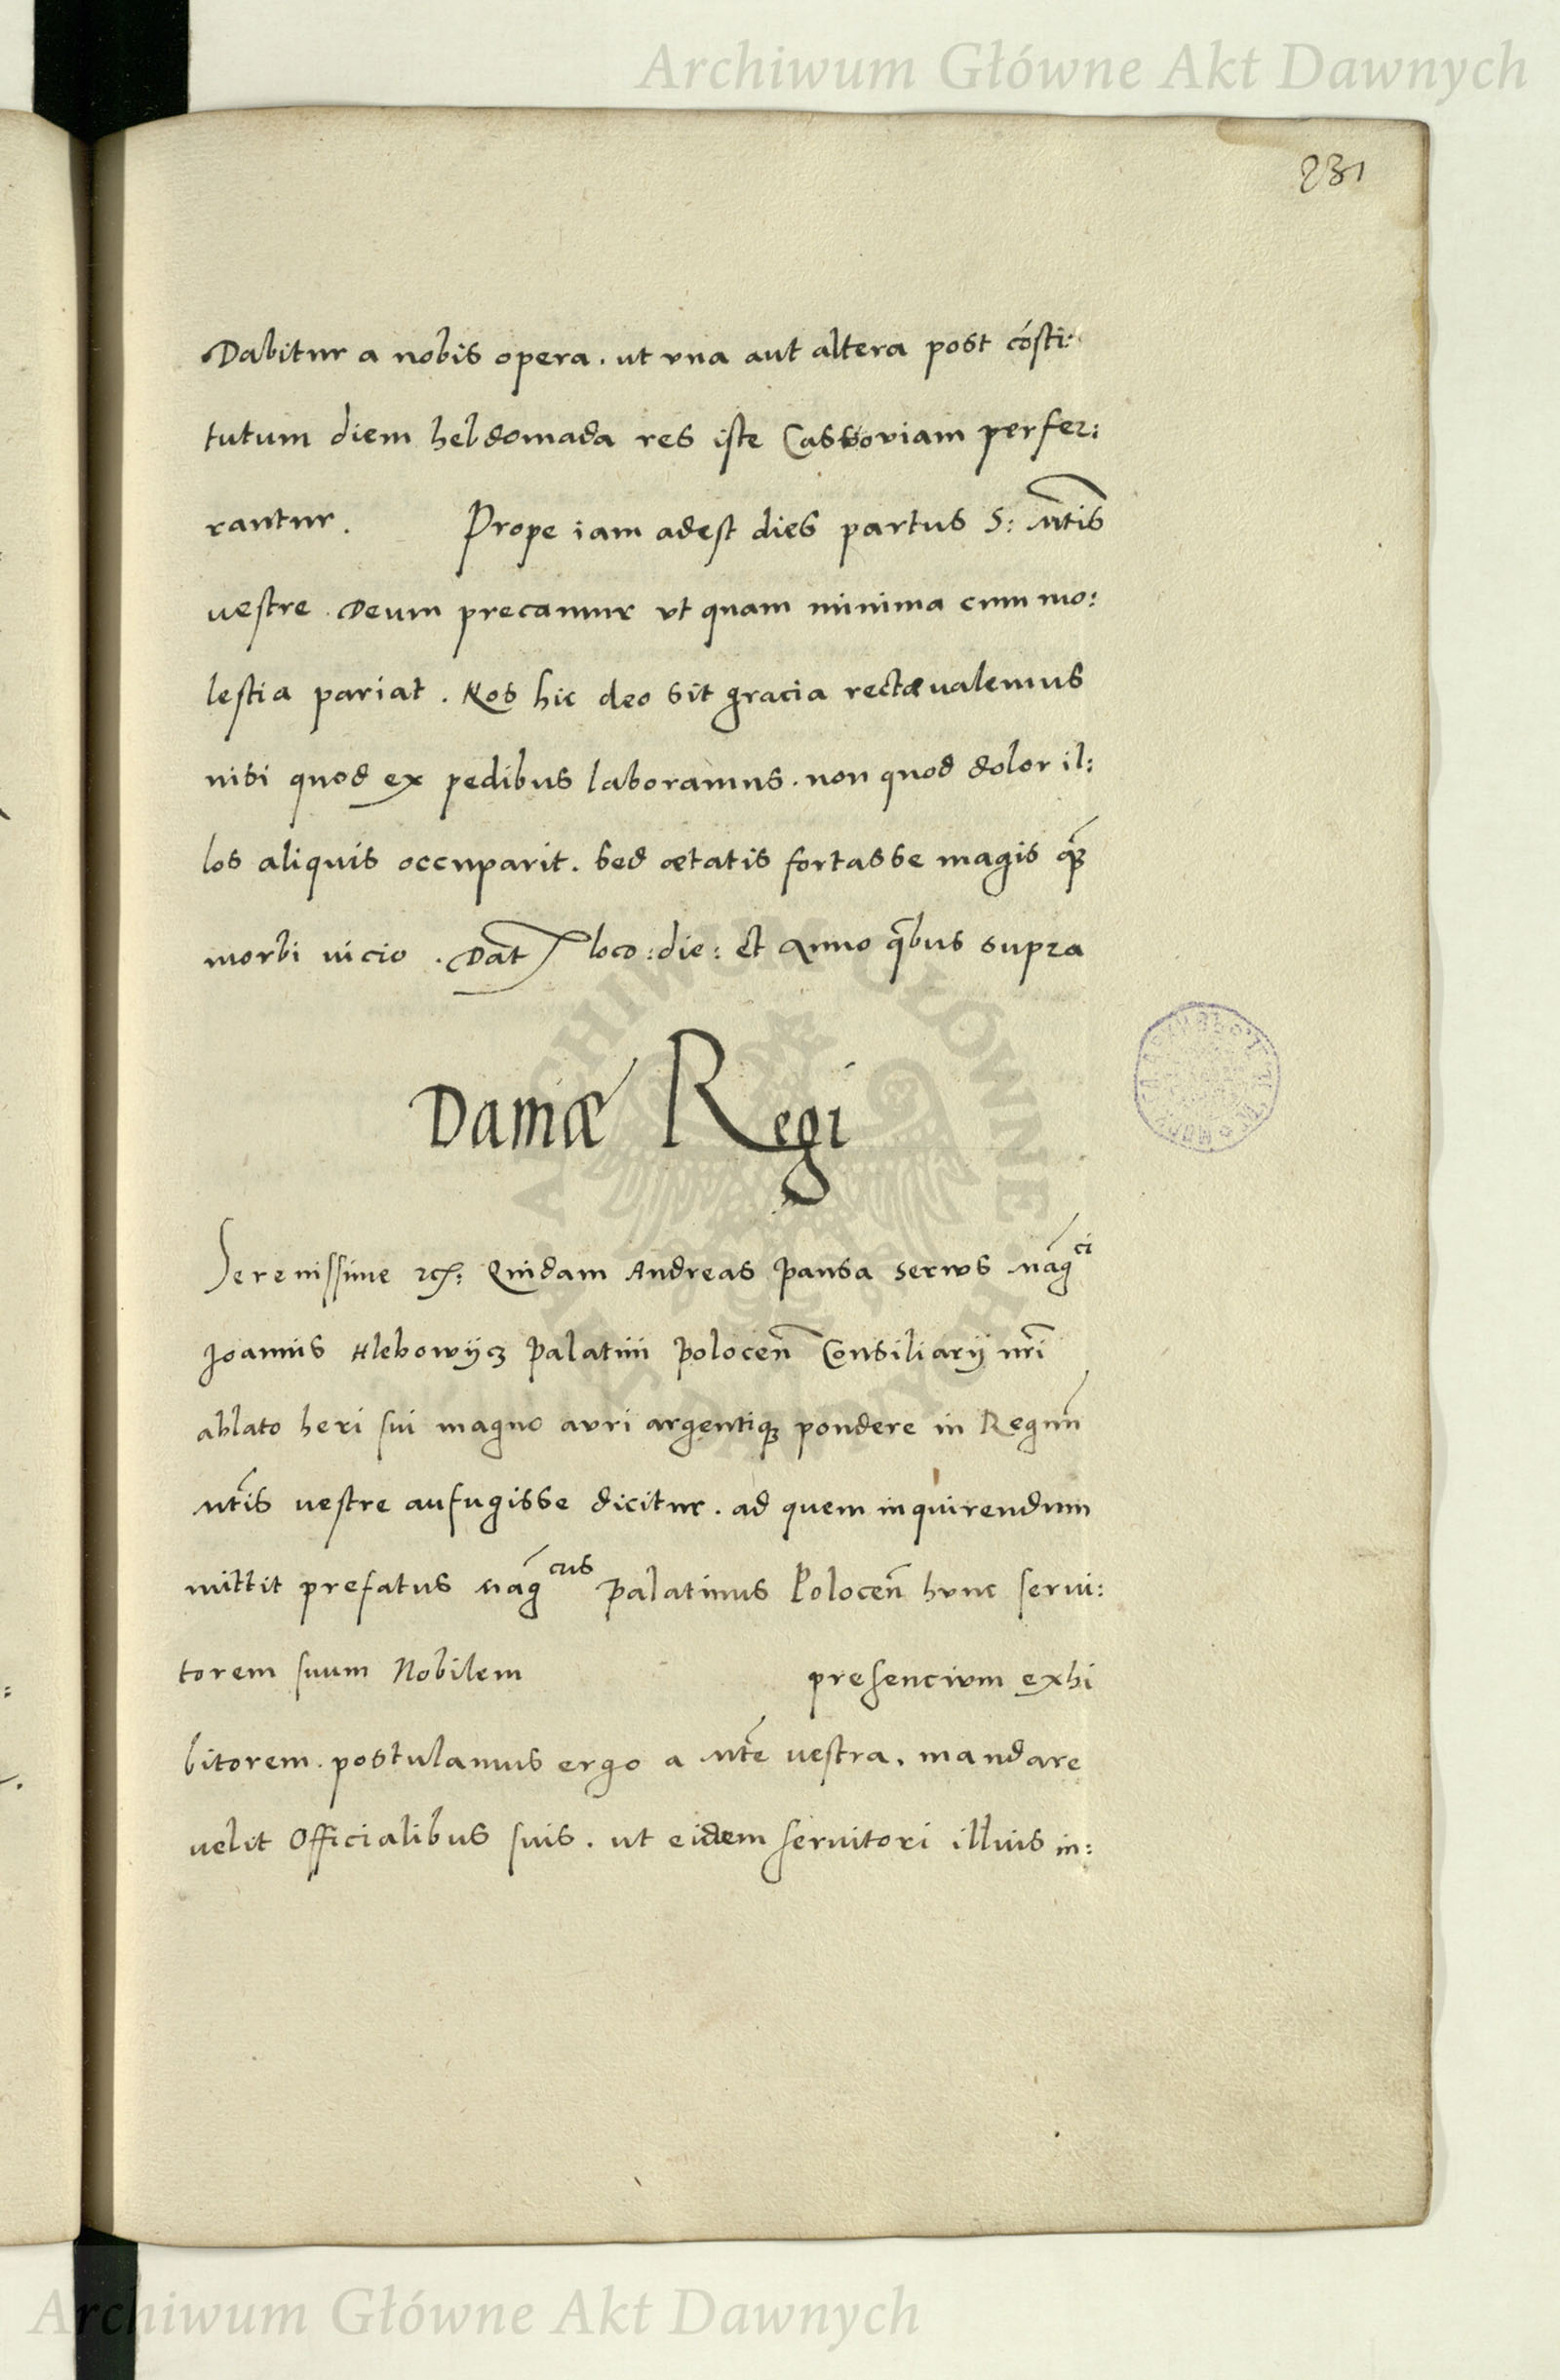 Archiwum Główne Akt Dawnych
231
Dabitur a nobis opera . ut vna aut altera post cõsti:
tutum diem hebdomada res iste Cassoviam perfer:
rantur. Prope iam adest dies partus S: Mtis
vestre . Deum precamur vt quam minima cum mo:
lestia pariat . Nos hic deo sit gracia rectæ valemus
nisi quod ex pedibus laboramus . non quod dolor il:
los aliquis occuparit . sed ætatis fortasse magis q̃
morbi uicio . Dat loco : die : et Anno q̃bus supra
Damæ Regi
Serenissime etc: Quidam Andreas Pansa serws Mag̃ci
Joannis Hlebowijcz Palatini Polocen̄ Consiliarij nr̄i
ablato heri sui magno auri argentiq; pondere in Regnũ
Mtis vestre aufugisse dicitur . ad quem inquirendum
mittit prefatus Mag̃cus Palatinus Polocen̄ hunc serui:
torem suum Nobilem presencium exhi
bitorem . postulamus ergo a Mte vestra . mandare
velit Officialibus suis . ut eidem seruitori illius in:
Archiwum Główne Akt Dawnych